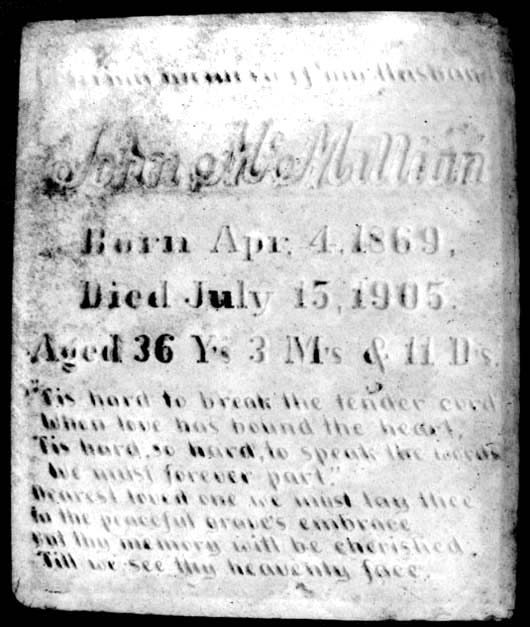 memory of Husband
John McMillian
Born Apr. 4, 1869,
Died July 15, 1905.
Aged 36 Ys 3 Ms & 11 Ds.
"Tis hard to break the tender cord
When love has bound the heart,
'Tis hard, so hard, to speak the words
We must forever part."
Dearest loved one we must lay thee
In the peaceful grave's embrace
But thy memory will be cherished
Till we see thy heavenly face.